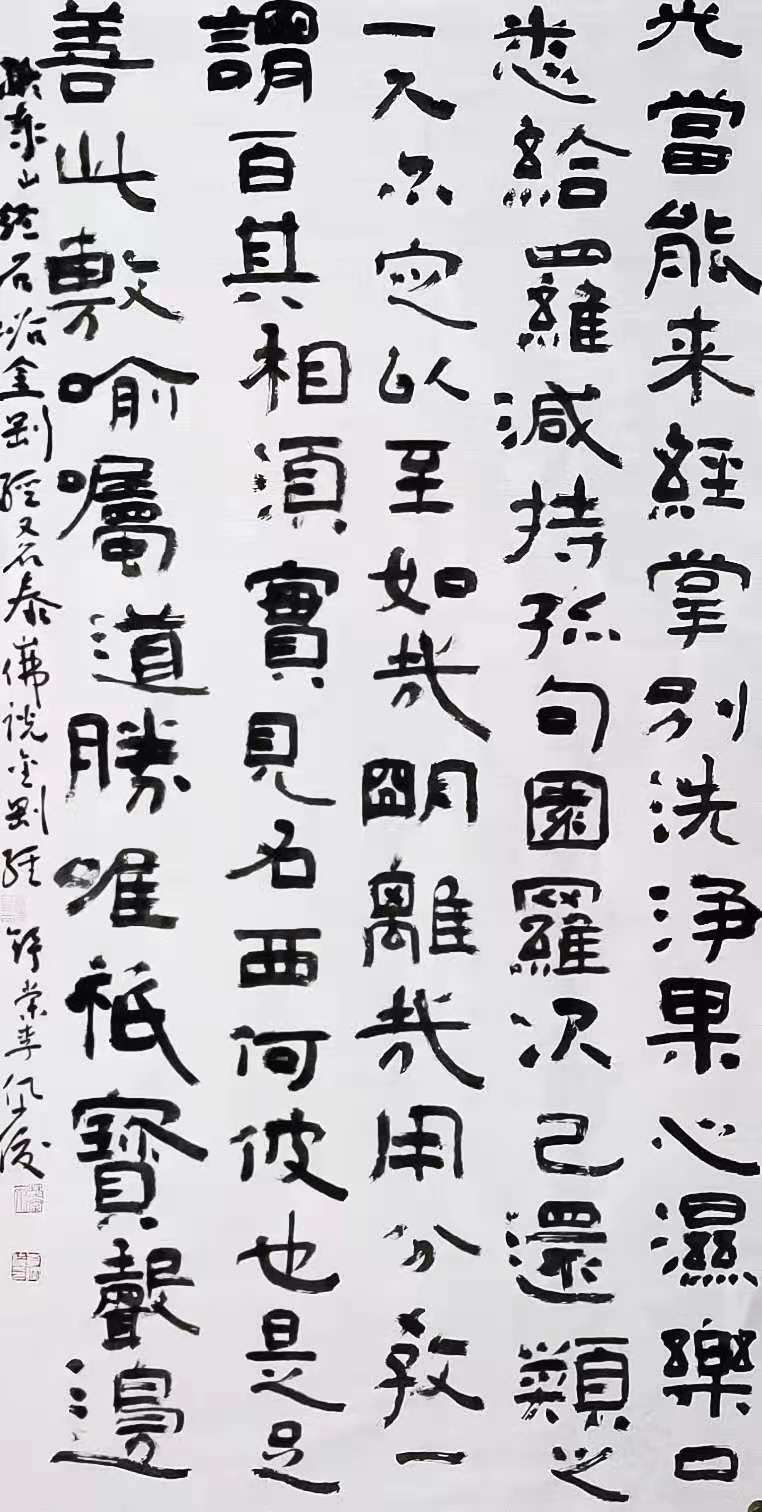 光當能来經掌別洗淨果心濕樂口
悉給四羅減持孫句園羅次已還類之
一入尒定以至如哉明離哉用分教一
謂百其相須實見名西何彼也是足
善此敷喻囑道勝唯祇寶聲邊
泰山经石峪金剛經又名泰佛说金剛经